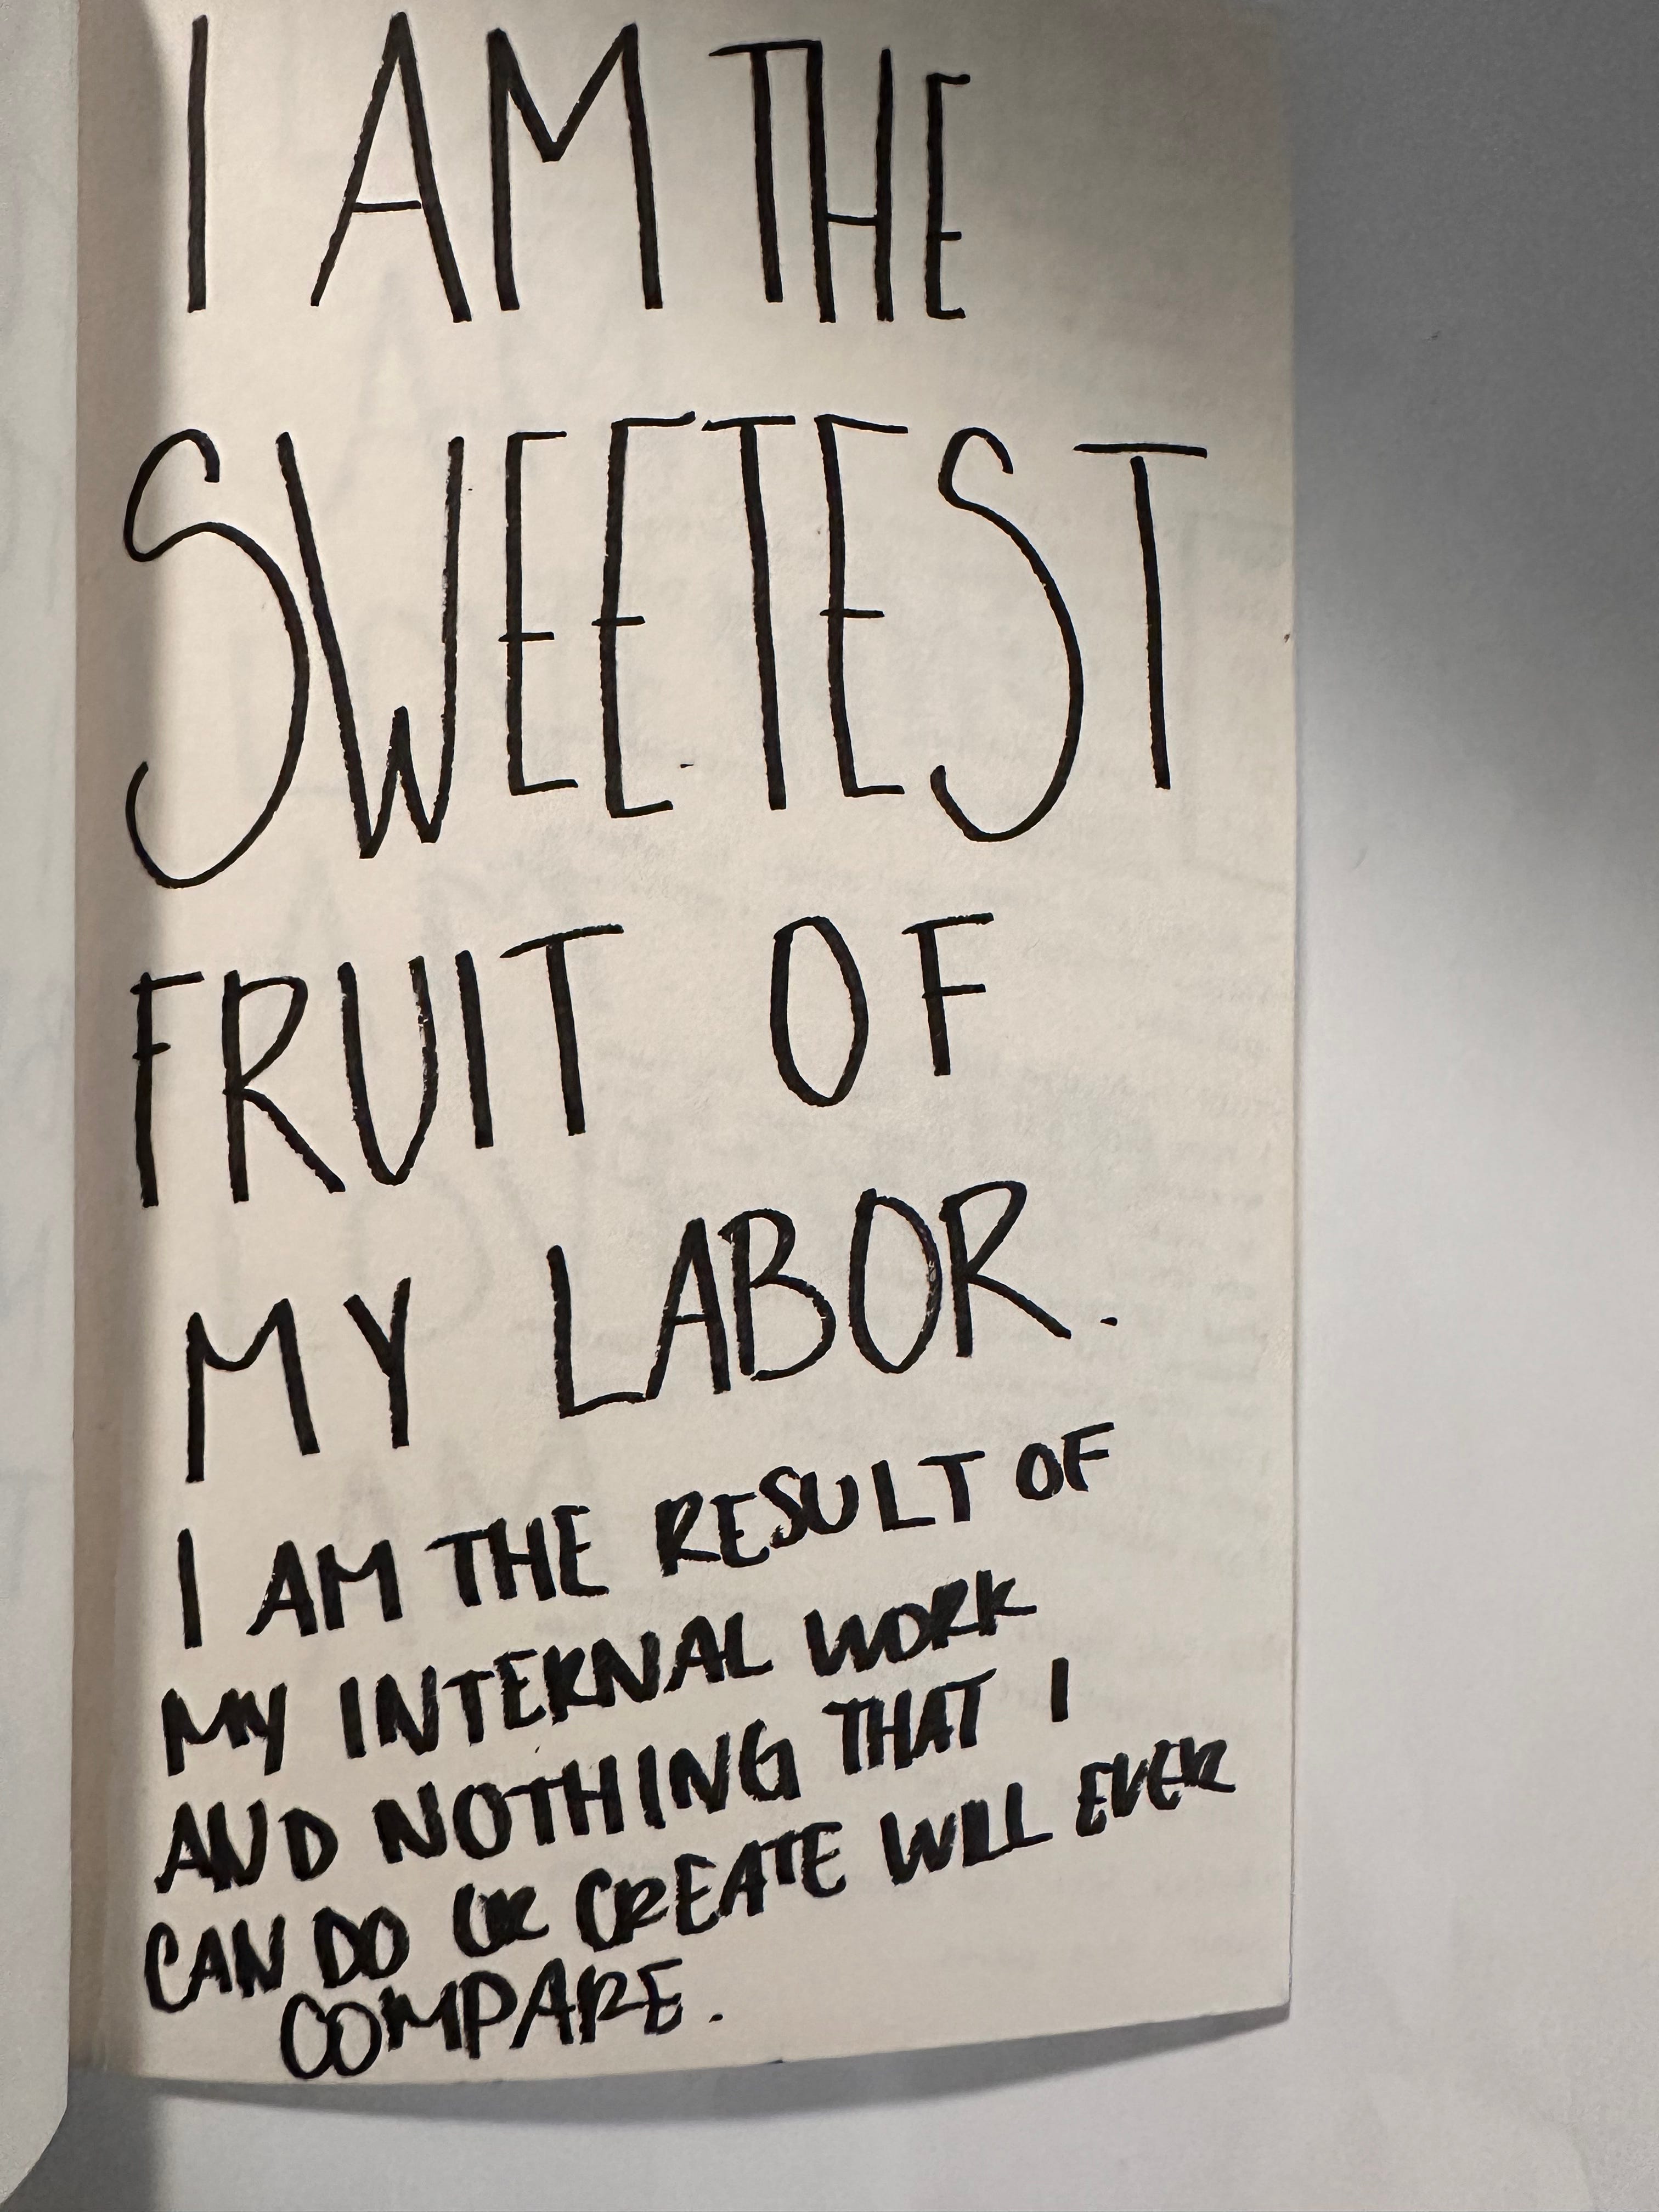 I AM THE
SWEETEST
FRUIT OF
MY LABOR.
I AM THE RESULT OF
MY INTERNAL WORK
AND NOTHING THAT I
CAN DO OR CREATE WILL EVER
COMPARE.